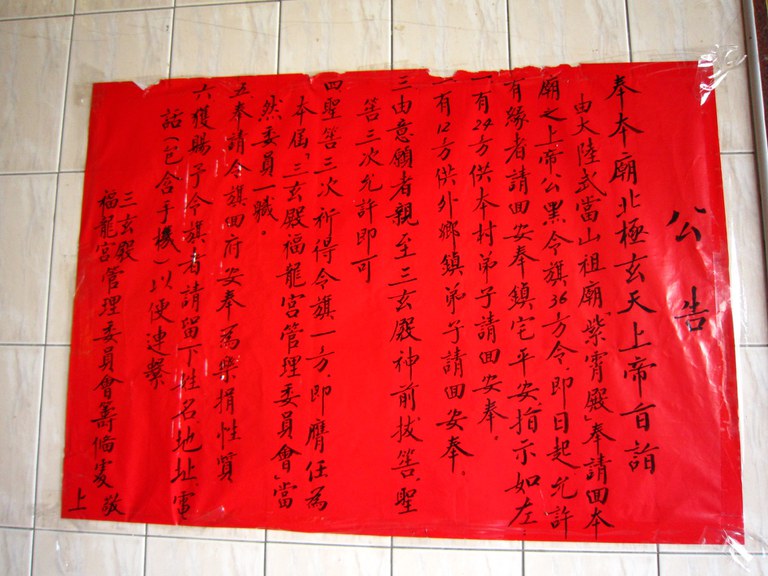 公告
奉本廟北極玄天上帝旨諭
由大陸武當山祖廟「紫霄殿」奉請回本
廟之上帝公黑令旗36方令、即日起允許
有緣者請回安奉鎮宅平安指示如左
一有24方供本村弟子請回安奉。
一有12方供外鄉鎮弟子請回安奉。
三由意願者親至三玄殿神前拔筶、聖
筶三次允許即可
四聖筶三次所得令旗一方、即膺任為
本屆「三玄殿福龍宮管理委員會」當
然委員一職。
五奉請令旗回府安奉為樂捐性質
六獲賜予令旗者請留下姓名地址、電
話(包含手機)以便連繫
三玄殿
福龍宮管理委員會籌備處 敬
上